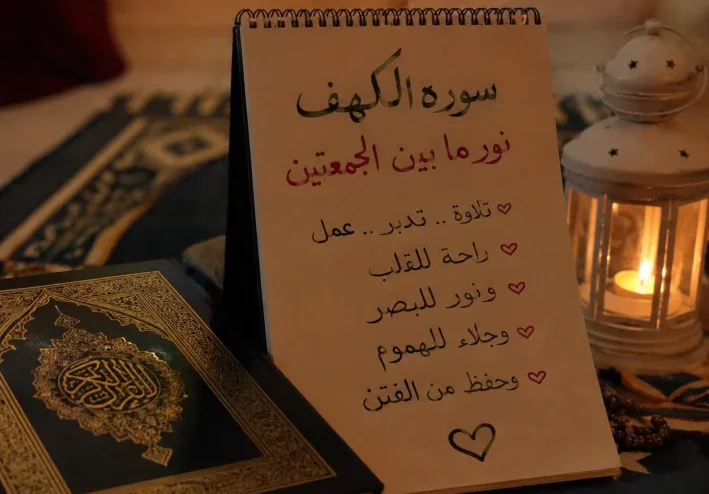 سوره الكهف
نور ما بين الجمعتين
تلاوة .. تدبر .. عمل
راحة للقلب
ونور للبصر
وجلاء للهموم
وحفظ من الفتن
القرآن الكريم